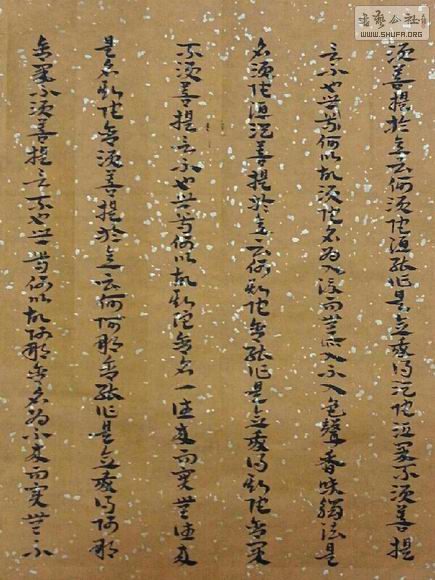 書藝公社
WWW.SHUFA.ORG
須菩提於意云何須陀洹能作是念我得須陀洹果不須菩提
言不也世尊何以故須陀名為入流而無所入不入色聲香味觸法是
名須陀洹須菩提於意云何斯陀含能作是念我得斯陀含果
不須菩提言不也世尊何以故斯陀含名一往來而實無往來
是名斯陀含須菩提於意云何阿那含能作是念我得阿那
含果不須菩提言不也世尊何以故阿那含名為不來而實無不